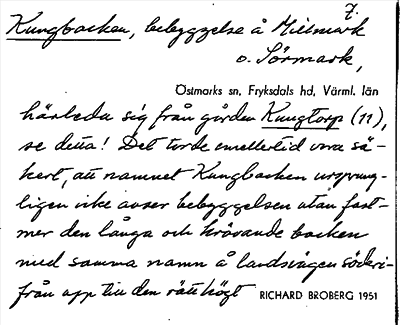 7.
Kungbacken, bebyggelse å Millmark
o. Sörmark,
Östmarks sn, Fryksdals hd, Värml. län
härleda sig från gården Kungtorp (11),
se detta! Det torde emellertid vara sä-
kert, att namnet Kungbacken ursprung-
ligen icke avser bebyggelsen utan fast-
mer den långa och krävande backen
med samma namn å landsvägen söderi-
från upp till den rätt högt
RICHARD BROBERG 1951